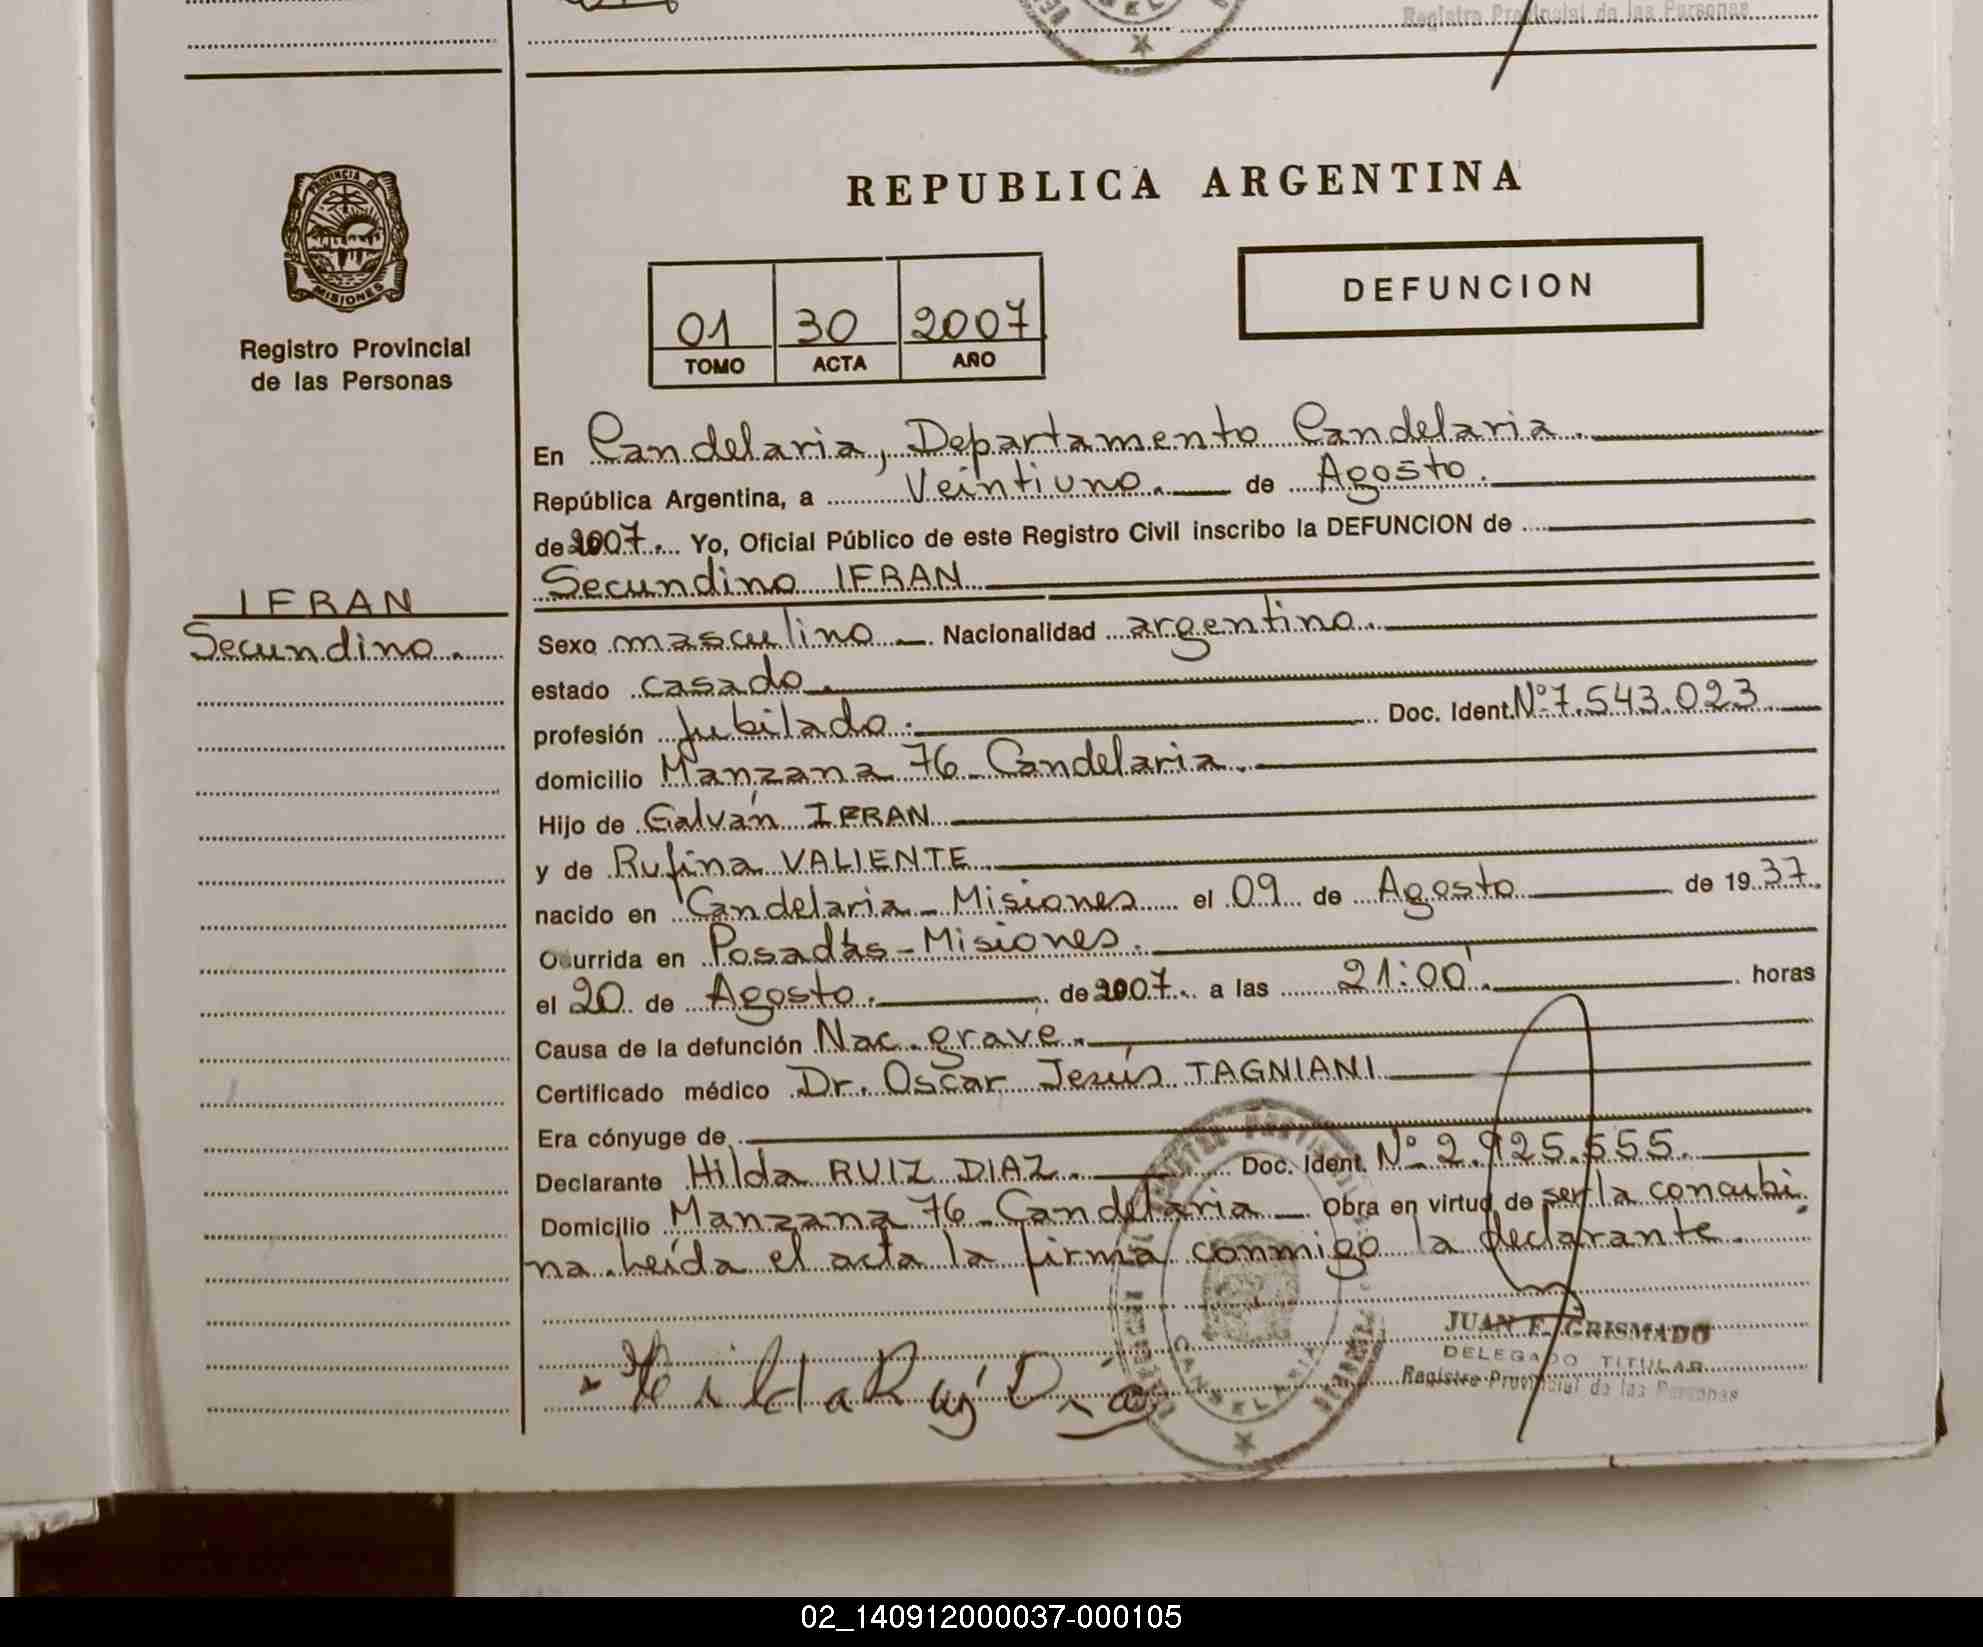 Registro Provincial de las Personas
PROVINCIA DE
MISIONES
Registro Provincial
de las Personas
IFRAN
Secundino.
REPUBLICA ARGENTINA
01 30 2007
TOMO ACTA AÑO
DEFUNCION
En Candelaria, Departamento Candelaria.
República Argentina, a Veintiuno. de Agosto.
de 2007. Yo, Oficial Público de este Registro Civil inscribo la DEFUNCION de
Secundino IFRAN
Sexo masculino Nacionalidad argentino.
estado casado.
profesión Jubilado. Doc. Ident. Nº 7.543.023
domicilio Manzana 76 - Candelaria.
Hijo de Galván IFRAN
y de Rufina VALIENTE
nacido en Candelaria - Misiones el 09 de Agosto de 1937.
Ocurrida en Posadas - Misiones.
el 20 de Agosto. de 2007. a las 21:00'. horas
Causa de la defunción Nac. grave.
Certificado médico Dr. Oscar Jesús TAGNIANI
Era cónyuge de
Declarante Hilda RUIZ DIAZ. Doc. Ident. Nº 2.925.555.
Domicilio Manzana 76 - Candelaria Obra en virtud de ser la concubi
na. Leída el acta la firma conmigo la declarante.
Hilda Ruiz Diaz
JUAN F. GRISMADO
DELEGADO TITULAR
Registro Provincial de las Personas
02_140912000037-000105